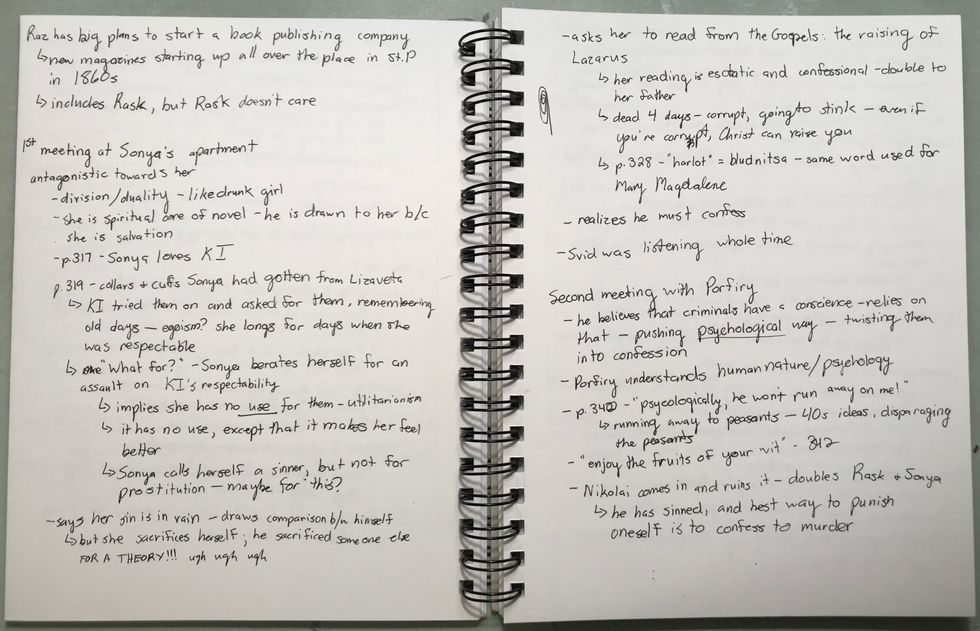 Raz has big plans to start a book publishing company
↳ new magazines starting up all over the place in St.P
in 1860s
↳ includes Rask, but Rask doesn't care
1st meeting at Sonya's apartment
antagonistic towards her
- division/duality - like drunk girl
- she is spiritual core of novel - he is drawn to her b/c
she is salvation
- p.317 - Sonya loves KI
p.319 - collars + cuffs Sonya had gotten from Lizaveta
↳ KI tried them on and asked for them, remembering
old days — egoism? she longs for days when she
was respectable
↳ "What for?" - Sonya berates herself for an
assault on KI's respectability
↳ implies she has no use for them - utilitarianism
↳ it has no use, except that it makes her feel
better
↳ Sonya calls herself a sinner, but not for
prostitution — maybe for this?
- says her sin is in vain - draws comparison b/w himself
↳ but she sacrifices herself; he sacrificed someone else
FOR A THEORY!!! ugh ugh ugh
- asks her to read from the Gospels: the raising of
Lazarus
↳ her reading is esctatic and confessional - double to
her father
↳ dead 4 days - corrupt, going to stink — even if
you're corrupt, Christ can raise you
↳ p.328 - "harlot" = bludnitsa - same word used for
Mary Magdalene
- realizes he must confess
- Svid was listening whole time
Second meeting with Porfiry
- he believes that criminals have a conscience - relies on
that — pushing psychological way — twisting them
into confession
- Porfiry understands human nature/psychology
- p.340 - "psycologically, he won't run away on me!"
↳ running away to peasants — 40s ideas, disparaging
the peasants
- "enjoy the fruits of your wit" - 342
- Nikolai comes in and ruins it - doubles Rask + Sonya
↳ he has sinned, and best way to punish
oneself is to confess to murder